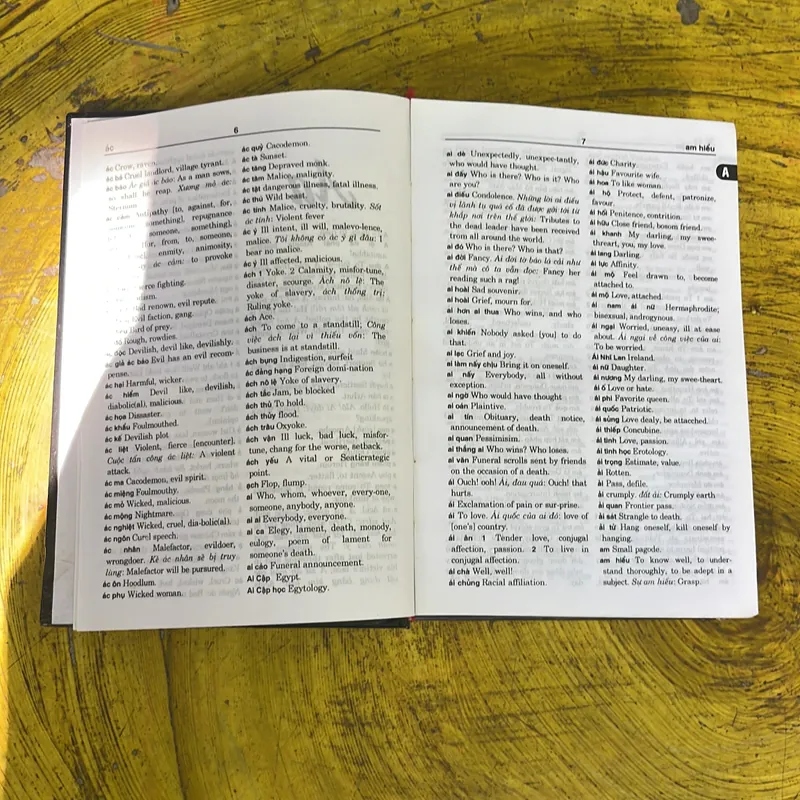 ác
6
ác Crow, raven.
ác bá Cruel landlord, village tyrant.
ác báo Ác giả ác báo: As a man sows,
so shall he reap. Xương mô de:
ác cảm Antipathy [to, against, for,
something], repugnance
someone, something],
for, from, to, someone,
enmity, animosity,
ác cảm: to provoke
fierce fighting.
renown, evil repute.
Evil faction, gang.
Bird of prey.
Rough, rowdies.
độc Devilish, devil like, devilishly.
ác giả ác báo Evil has an evil recom-
pense.
ác hại Harmful, wicker.
ác hiểm Devil like, devilish,
diabolic(al), malicious.
ác họa Dissaster.
ác khẩu Foulmouthed.
ác kế Devilish plot
ác liệt Violent, fierce [encounter].
Cuộc tấn công ác liệt: A violent
attack.
ác ma Cacodemon, evil spirit.
ác miệng Foulmouthy.
ác mó Wicked, malicious.
ác mộng Nightmare.
ác nghiệt Wicked, cruel, dia-bolic(al).
ác ngôn Cruel speech.
ác nhân Malefactor, evildoer,
wrongdoer. Kẻ ác nhân sẽ bị truy
lùng: Malefactor will be pursured.
ác ôn Hoodlum.
ác phụ Wicked woman.
ác quỷ Cacodemon.
ác tà Sunset.
ác tăng Depraved monk.
ác tâm Malice, malignity.
ác tật dangerous illness, fatal illness.
ác thú Wild beast.
ác tính Malice, cruelty, brutality. Sốt
ác tính: Violent fever
ác ý Ill intent, ill will, malevo-lence,
malice. Tôi không có ác ý gì đâu: I
bear no malice.
ác ý Ill affected, malicious.
ách 1 Yoke. 2 Calamity, misfor-tune,
disaster, scourge. Ách nô lệ: The
yoke of slavery, ách thống trị:
Ruling yoke.
ách Ace.
ách To come to a standstill; Công
việc ách lại vì thiếu vốn: The
business is at standstill.
ách bụng Indigestion, surfeit
ách đằng hạng Foreign domi-nation
ách nô lệ Yoke of slavery
ách tắc Jam, be blocked
ách thủ To hold.
ách thủy flood.
ách trâu Oxyoke.
ách vận Ill luck, bad luck, misfor-
tune, chang for the worse, setback.
ách yếu A vital or Seaticrategic
point.
ạch Flop, flump.
ai Who, whom, whoever, every-one,
someone, anybody, anyone.
ai ai Everybody, everyone.
ai ca Elegy, lament, death, monody,
eulogy, poem of lament for
someone's death.
ai cáo Funeral announcement.
Ai Cập Egypt.
Ai Cập học Egytology.
7
am hiểu
A
ai dè Unexpectedly, unexpec-tantly,
who would have thought.
ai đấy Who is there? Who is it? Who
are you?
ai điếu Condolence. Những lời ai điếu
vị lãnh tụ quá cố đã được gởi tới từ
khắp nơi trên thế giới: Tributes to
the dead leader have been received
from all around the world.
ai đó Who is there? Who is that?
ai đời Fancy. Ai đời tờ báo lá cải như
thế mà cô ta vẫn đọc: Fancy her
reading such a rag!
ai hoài Sad souvenir.
ai hoài Grief, mourn for.
ai hơn ai thua Who wins, and who
loses.
ai khiến Nobody asked [you] to do
that.
ai lạc Grief and joy.
ai làm nấy chịu Bring it on oneself.
ai nấy Everybody, all without
exception.
ai ngờ Who would have thought
ai oán Plaintive.
ai tín Obituary, death notice,
announcement of death.
ai quan Pessimisim.
ai thắng ai Who wins? Who loses.
ai vãn Funeral scrolls sent by friends
on the occasion of a death.
ái Ouch! ooh! Ái, đau quá: Ouch! that
hurts.
ái Exclamation of pain or sur-prise.
ái To love. Ái quốc của ai đó: love of
[one's] country.
ái ân 1 Tender love, conjugal
affection, passion. 2 To live in
conjugal affection.
ái chà Well, well!
ái chủng Racial affiliation.
ái đức Charity.
ái hậu Favourite wife.
ái hoa To like woman.
ái hộ Protect, defent, patronize,
favour.
ái hối Penitence, contrition.
ái hữu Close friend, bosom friend.
ái khanh My darling, my swee-
threart, you, my love.
ái lang Darling.
ái lực Affinity.
ái mộ Feel drawn to, become
attached to.
ái mộ Love, attached.
ái nam ái nữ Hermaphrodite;
bisexual, androgynous.
ái ngại Worried, uneasy, ill at ease
about. Ái ngại về công việc của ai:
To be worried.
Ái Nhĩ Lan Ireland.
ái nữ Daughter.
ái nương My darling, my swee-theart.
ái ố Love or hate.
ái phi Favorite queen.
ái quốc Patriotic.
ái sủng Love dealy, be attacched.
ái thiếp Concubine.
ái tình Love, passion.
ái tình học Erotology.
ái trọng Estimate, value.
ải Rotten.
ải Pass, defile.
ải crumply. đất ải: Crumply earth
ải quan Frontier pass.
ải sát Strangle to death.
ải tử Hang oneself, kill oneself by
hanging.
am Small pagode.
am hiểu To know well, to under-
stand thoroughly, to be adept in a
subject. Sự am hiểu: Grasp.